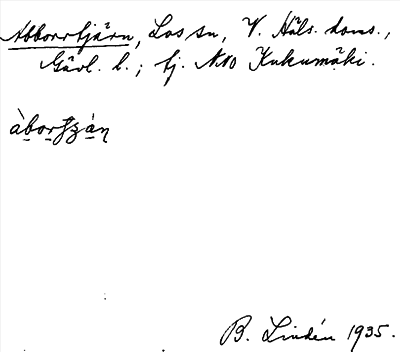 Abborrtjärn, Los sn, V. Häls. doms.,
Gävl. l.; tj. NNO Kukumäki.
àborʃʒán
B. Lindén 1935.